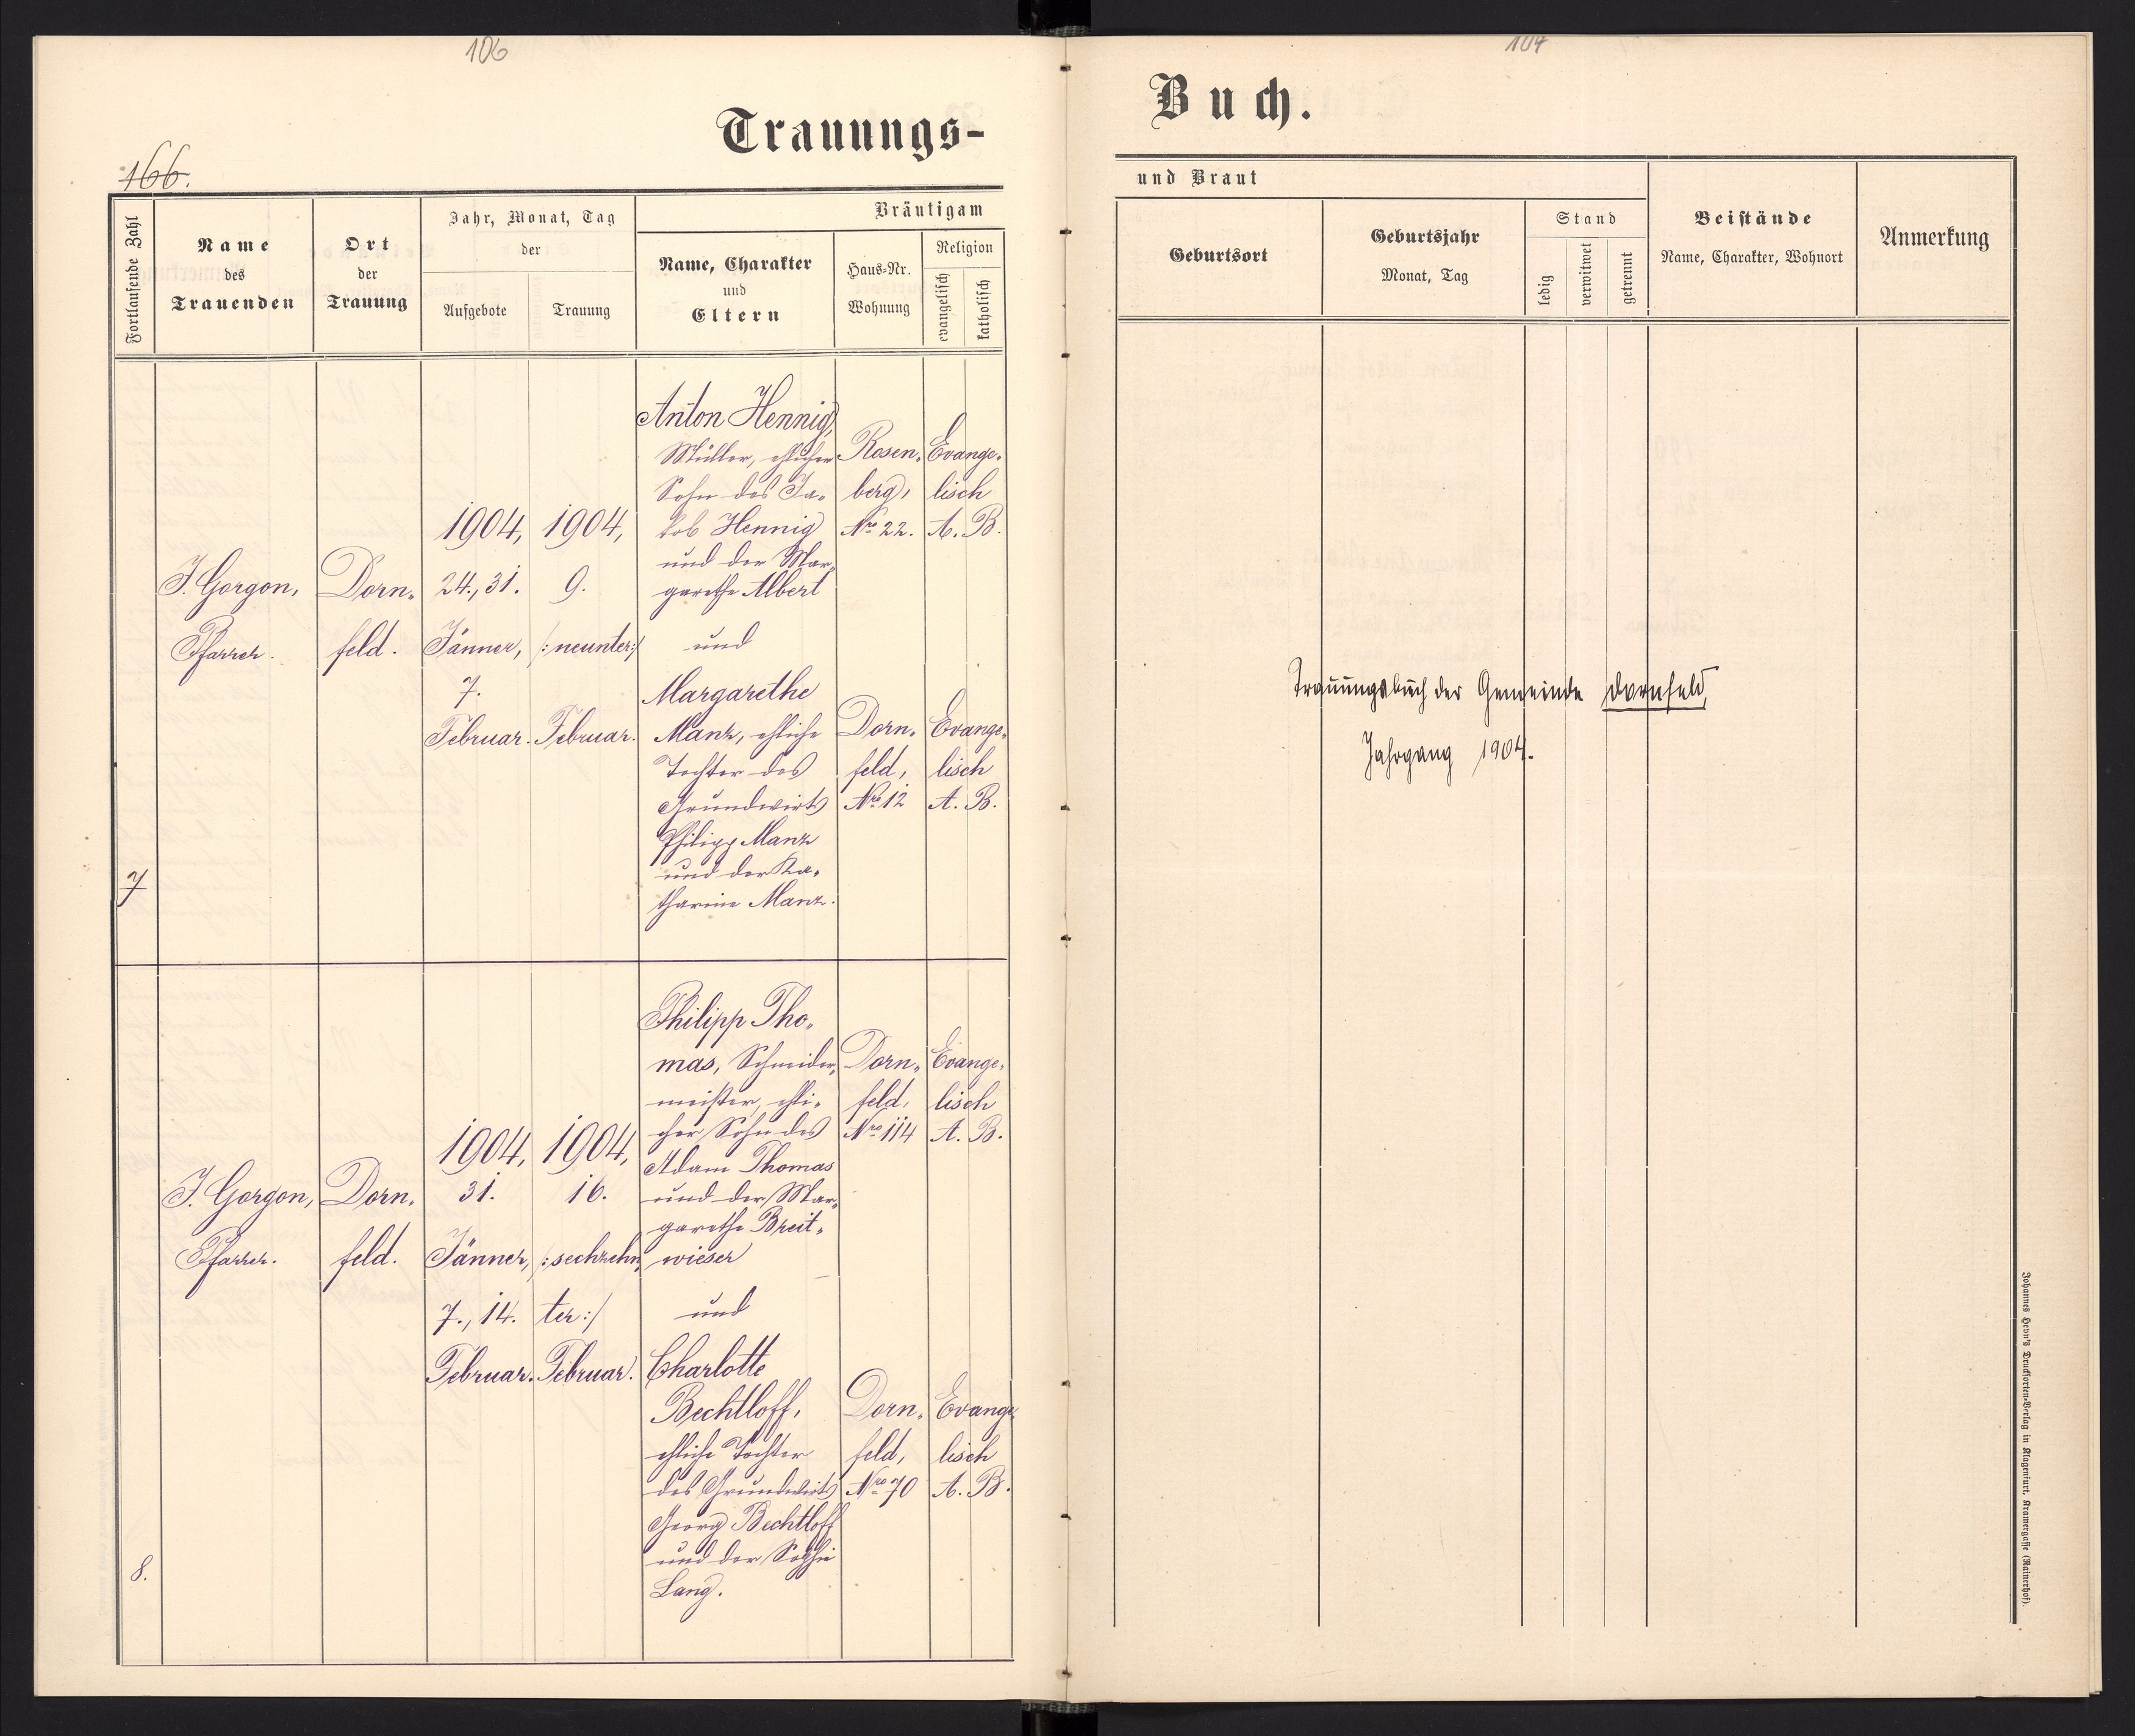 106
Trauungs-
166.
Fortlaufende Zahl
Name
des
Trauenden
Ort
der
Trauung
Jahr, Monat, Tag
der
Aufgebote
Trauung
Bräutigam
Name, Charakter
und
Eltern
Haus-Nr.
Wohnung
Religion
evangelisch
katholisch
7
J. Gorgon,
Pfarrer.
Dorn-
feld.
1904,
24., 31.
Jänner,
7.
Februar.
1904,
9.
/:neunter:/
Februar.
Anton Hennig,
Müller, ehlicher
Sohn des Ja-
kob Hennig
und der Mar-
garethe Albert
und
Margarethe
Manz, ehliche
Tochter des
Grundwirts
Philipp Manz
und der Ka-
tharine Manz.
Rosen-
berg,
Nro 22.
Dorn-
feld,
Nro 12
Evange-
lisch
A. B.
Evange-
lisch
A. B.
8.
J. Gorgon,
Pfarrer.
Dorn-
feld.
1904,
31.
Jänner,
7., 14.
Februar.
1904,
16.
/:sechzehn-
ter:/
Februar.
Philipp Tho-
mas, Schneider-
meister, ehli-
cher Sohn des
Adam Thomas
und der Mar-
garethe Breit-
wieser
und
Charlotte
Bechtloff,
ehliche Tochter
des Grundwirts
Georg Bechtloff
und der Sophie
Lang.
Dorn-
feld,
Nro 114
Dorn-
feld,
Nro 70
Evange-
lisch
A. B.
Evange-
lisch
A. B.
107
Buch.
und Braut
Geburtsort
Geburtsjahr
Monat, Tag
Stand
ledig
verwitwet
getrennt
Beistände
Name, Charakter, Wohnort
Anmerkung
Trauungsbuch der Gemeinde Dornfeld,
Jahrgang 1904.
Johannes Heyn's Drucksorten-Verlag in Klagenfurt, Kramergasse (Rainerhof).